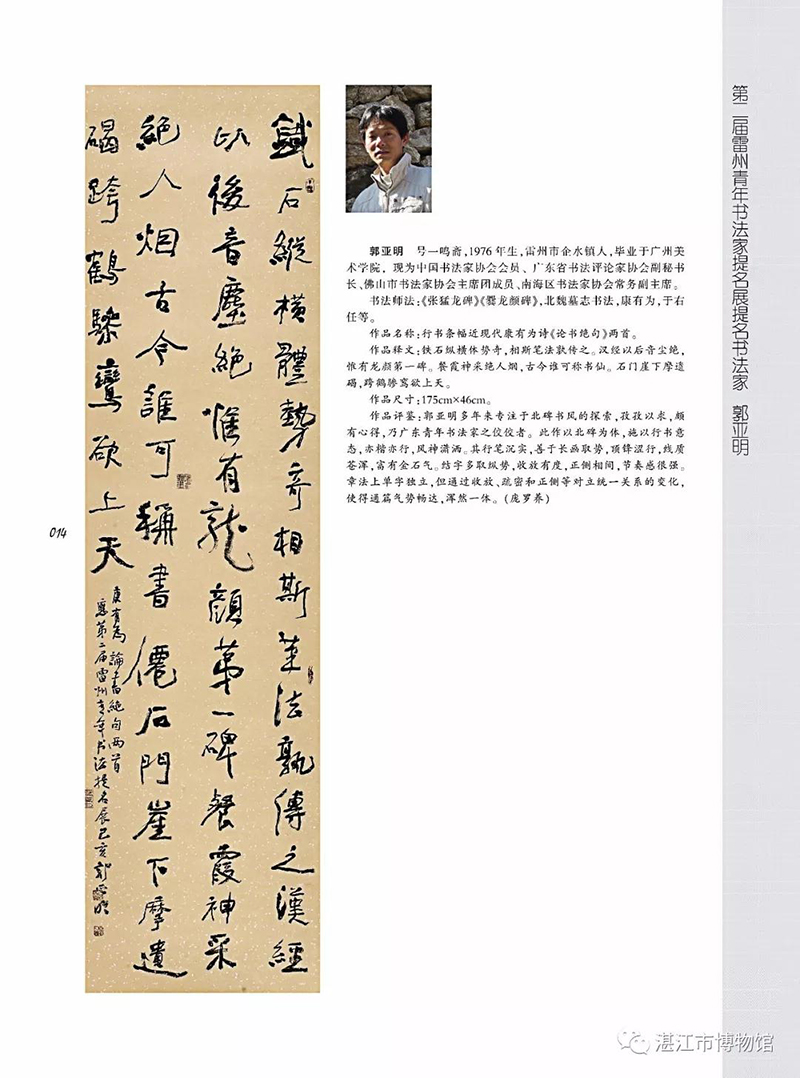 第二届雷州青年书法家提名展提名书法家 郭亚明
鐵石縱橫體勢奇相斯筆法孰傳之漢經
以後音塵絕惟有龍顏第一碑餐霞神采
絕人烟古今誰可稱書僊石門崖下摩遺
碣跨鶴驂鸞欲上天
康有為論書絕句兩首
應第二届雷州青年书法提名展己亥郭亞明
郭亚明 号一鸣斋,1976年生,雷州市企水镇人,毕业于广州美
术学院,现为中国书法家协会会员、广东省书法评论家协会副秘书
长、佛山市书法家协会主席团成员、南海区书法家协会常务副主席。
书法师法:《张猛龙碑》《爨龙颜碑》,北魏墓志书法,康有为,于右
任等。
作品名称:行书条幅近现代康有为诗《论书绝句》两首。
作品释文:铁石纵横体势奇,相斯笔法孰传之。汉经以后音尘绝,
惟有龙颜第一碑。餐霞神采绝人烟,古今谁可称书仙。石门崖下摩遗
碣,跨鹤骖鸾欲上天。
作品尺寸:175cm×46cm。
作品评鉴:郭亚明多年来专注于北碑书风的探索,孜孜以求,颇
有心得,乃广东青年书法家之佼佼者。此作以北碑为体,施以行书意
态,亦楷亦行,风神潇洒。其行笔沉实,善于长画取势,顶锋涩行,线质
苍浑,富有金石气。结字多取纵势,收放有度,正侧相间,节奏感很强。
章法上单字独立,但通过收放、疏密和正侧等对立统一关系的变化,
使得通篇气势畅达,浑然一体。(庞罗养)
014
湛江市博物馆